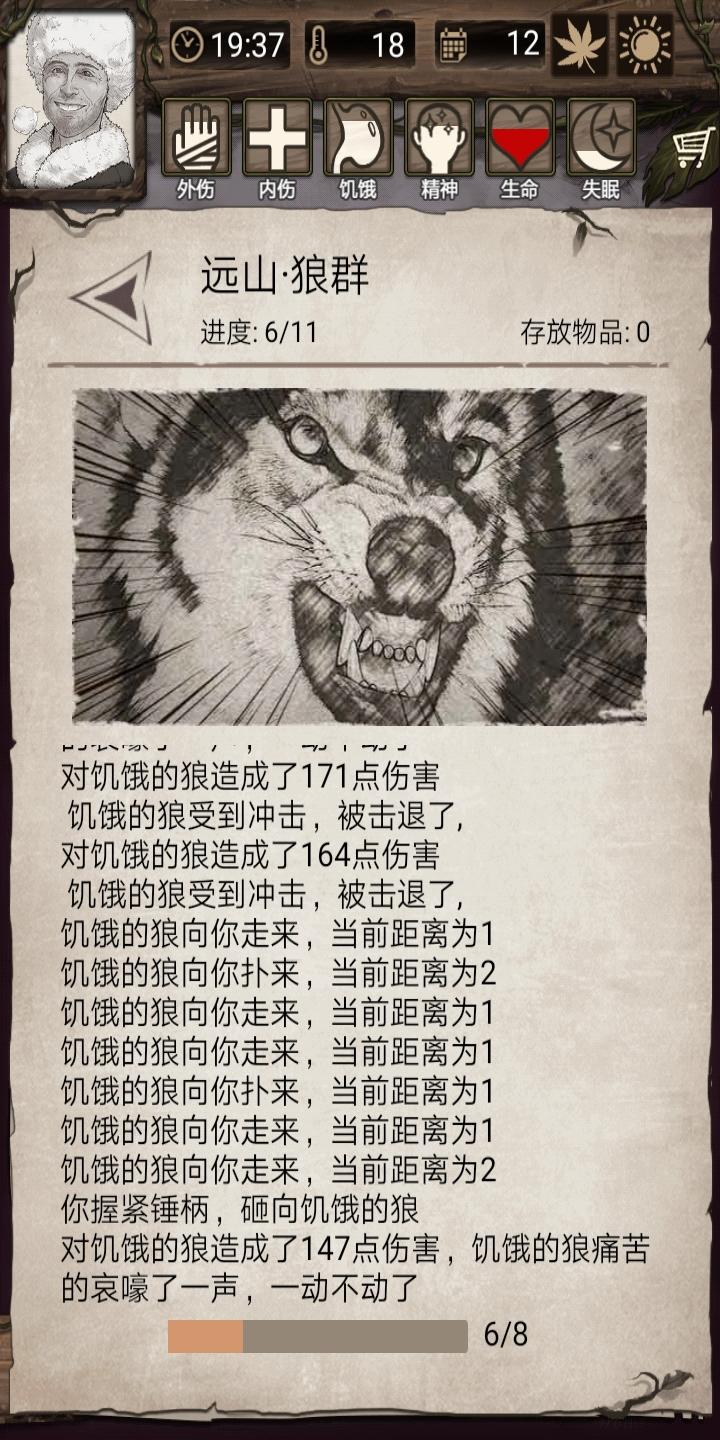 19:37
18
12
外伤
内伤
饥饿
精神
生命
失眠
远山·狼群
进度: 6/11
存放物品: 0
对饥饿的狼造成了171点伤害
饥饿的狼受到冲击，被击退了,
对饥饿的狼造成了164点伤害
饥饿的狼受到冲击，被击退了,
饥饿的狼向你走来，当前距离为1
饥饿的狼向你扑来，当前距离为2
饥饿的狼向你走来，当前距离为1
饥饿的狼向你走来，当前距离为1
饥饿的狼向你扑来，当前距离为1
饥饿的狼向你走来，当前距离为1
饥饿的狼向你走来，当前距离为2
你握紧锤柄，砸向饥饿的狼
对饥饿的狼造成了147点伤害，饥饿的狼痛苦
的哀嚎了一声，一动不动了
6/8